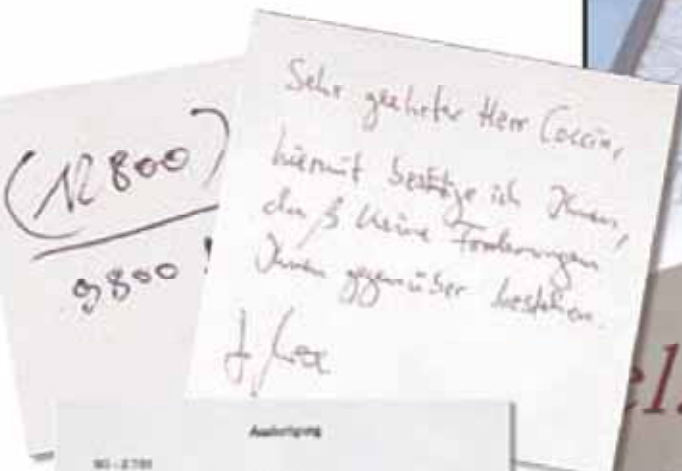 (12800)
9800 !
Sehr geehrter Herr
hiermit bestätige ich Ihnen,
daß keine Forderungen
Ihnen gegenüber bestehen.
Ausfertigung
el